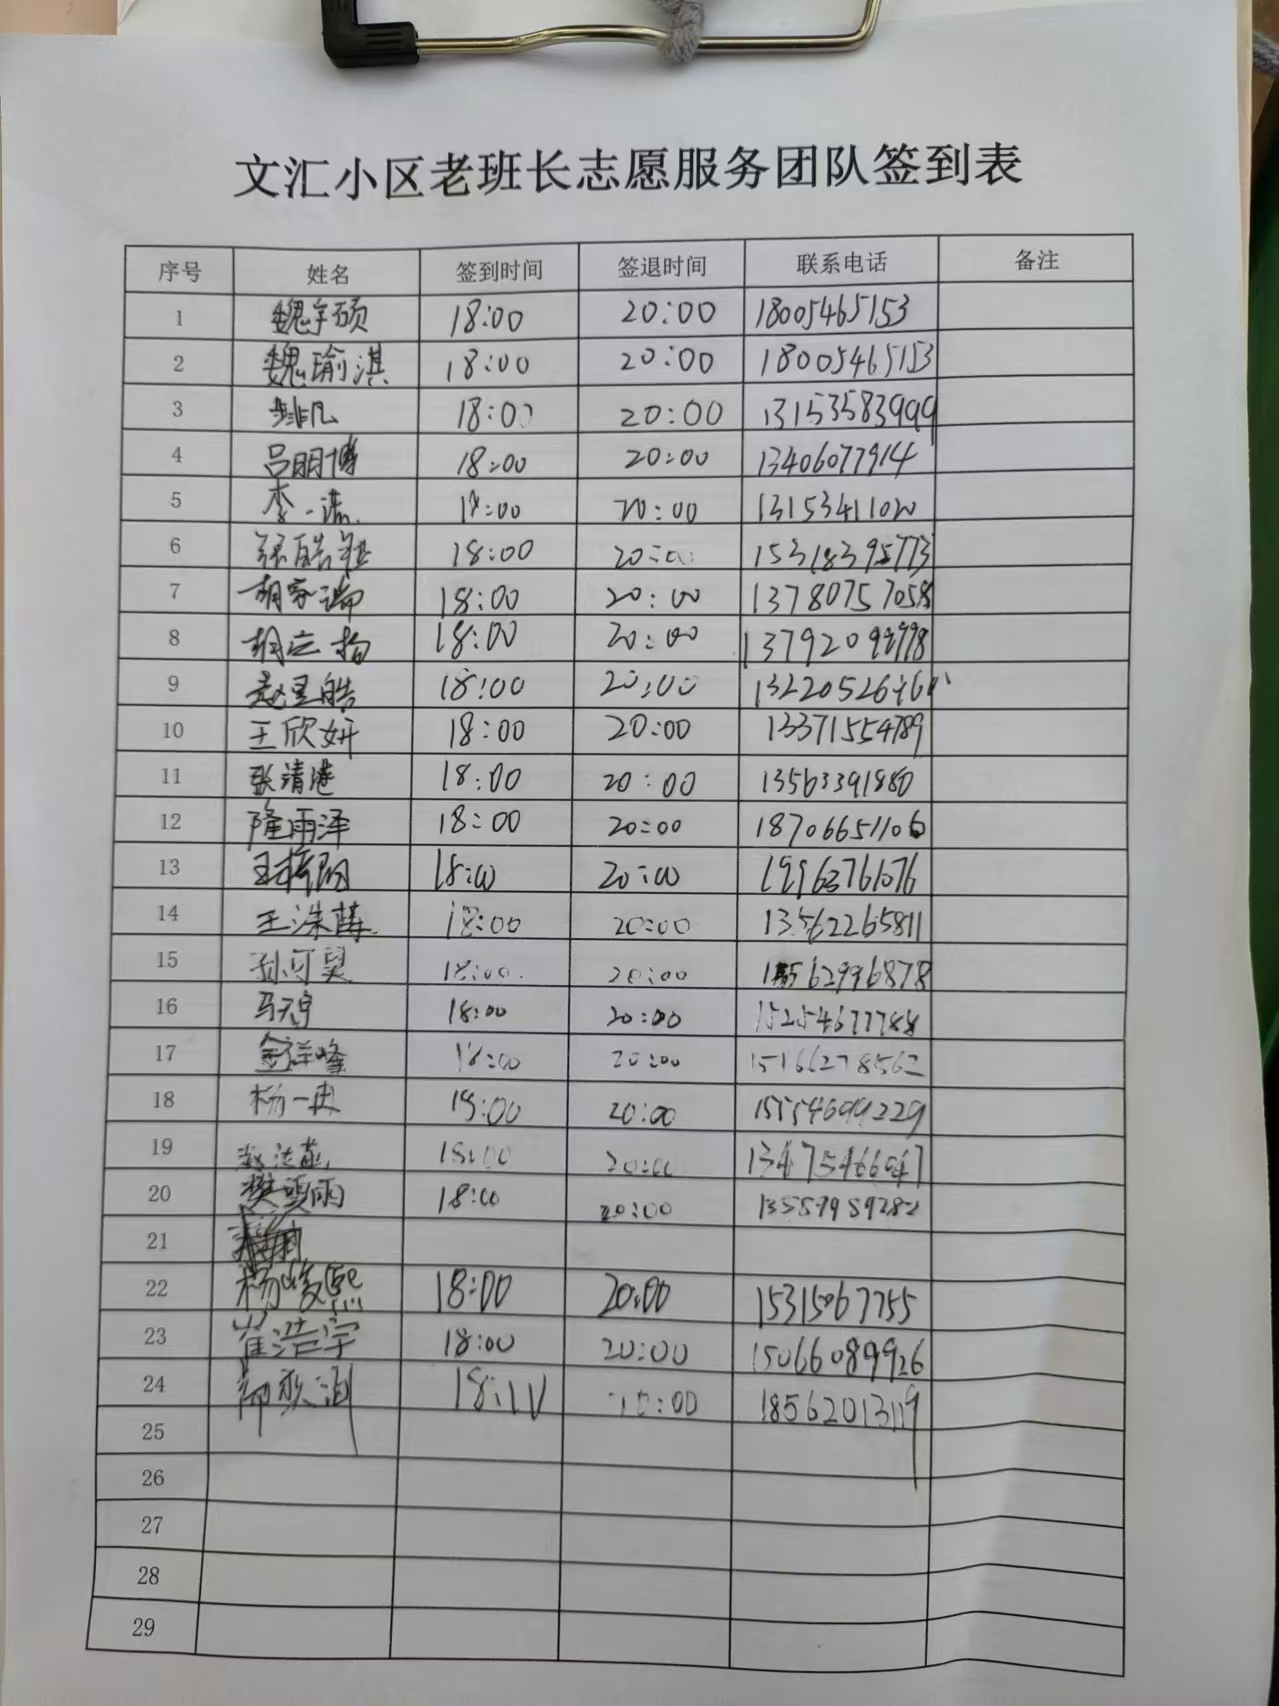 文汇小区老班长志愿服务团队签到表
序号 姓名 签到时间 签退时间 联系电话 备注
1 魏宇硕 18:00 20:00 18005465153
2 魏瑜淇 18:00 20:00 18005465153
3 18:00 20:00 13153583999
4 吕明博 18:00 20:00 13406077914
5 李一诺 18:00 20:00 13153411020
6 18:00 20:00 15318395773
7 胡家瑞 18:00 20:00 13780757058
8 18:00 20:00
9 赵星皓 18:00 20:00
10 王欣妍 18:00 20:00 13371554789
11 张清 18:00 20:00 13563391880
12 隆雨泽 18:00 20:00 18706651106
13 18:00 20:00 19963761076
14 王洙 18:00 20:00 13562265811
15 孙可昊 18:00 20:00
16 马天宇 18:00 20:00 15254677788
17 金祥峰 18:00 20:00 15166278562
18 杨一冉 18:00 20:00 15554699229
19 18:00 20:00 13475466047
20 樊雪雨 18:00 20:00
21
22 杨峻熙 18:00 20:00 15315067755
23 崔浩宇 18:00 20:00 15066089926
24 20:00 18562013119
25
26
27
28
29